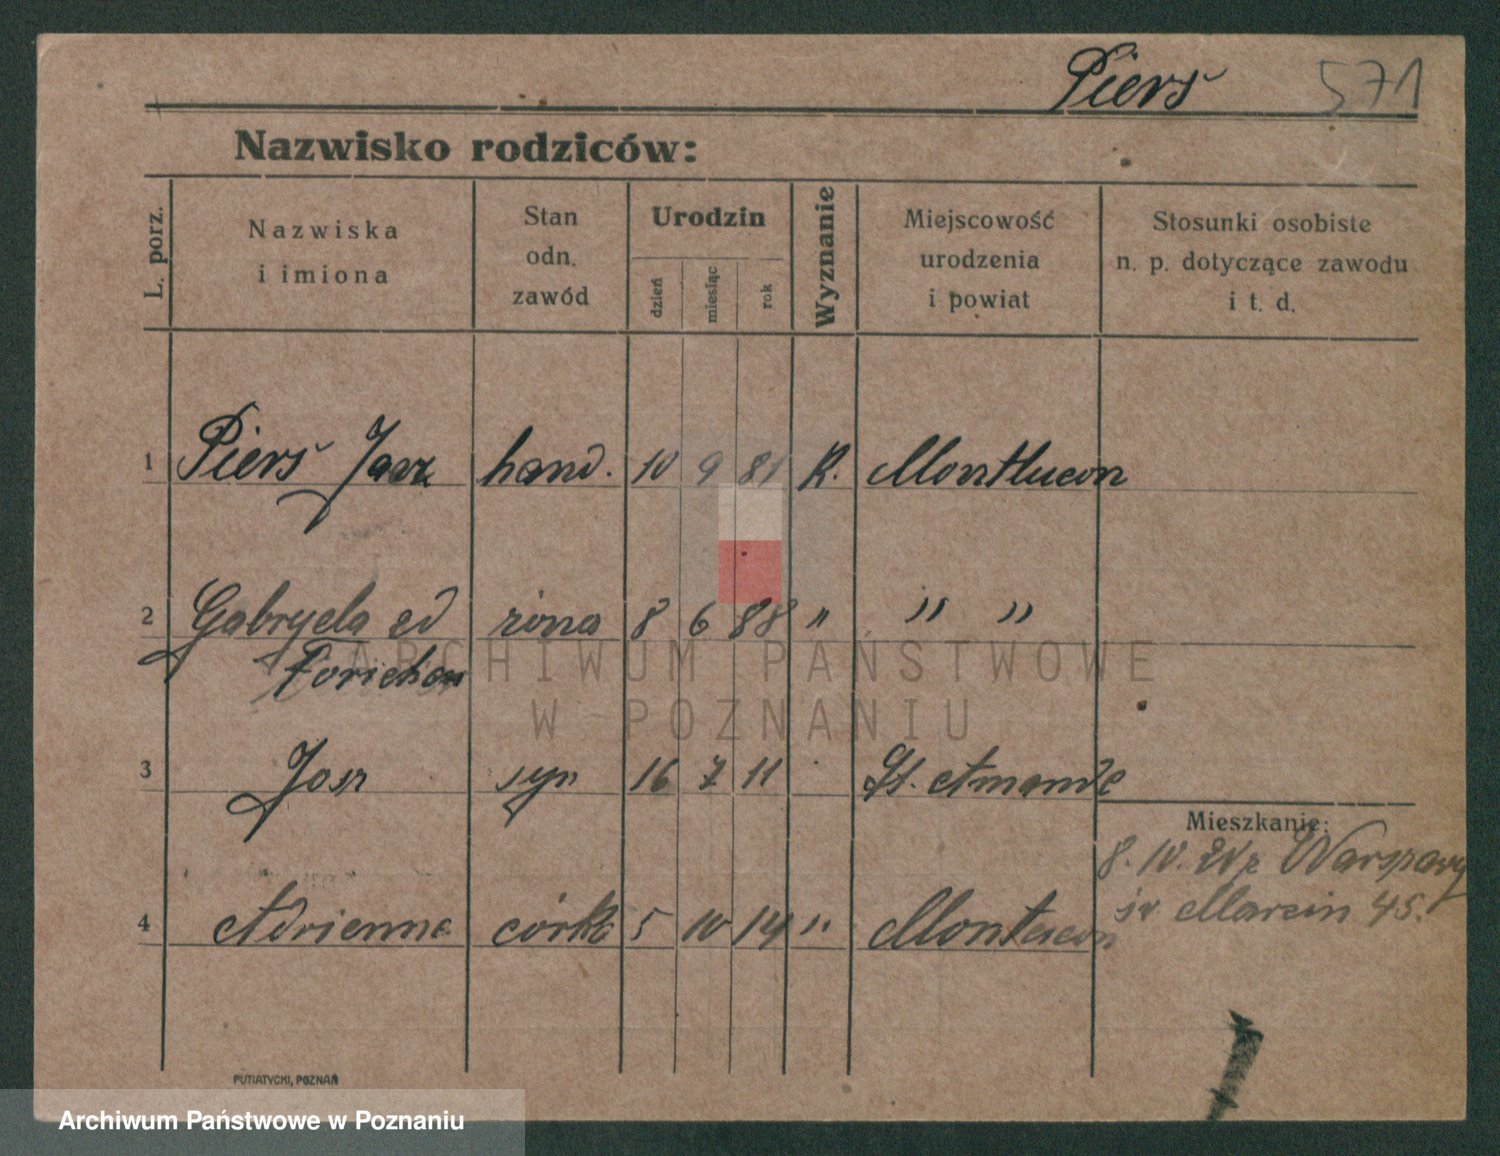 Piers 571
Nazwisko rodziców:
L. porz.
Nazwiska
i imiona
Stan
odn.
zawód
Urodzin
dzień
miesiąc
rok
Wyznanie
Miejscowość
urodzenia
i powiat
Stosunki osobiste
n. p. dotyczące zawodu
i t. d.
1 Piers hand. 10 9 81 R. Montlucon
2 Gabryela zd żona 8 6 88 " " "
ARCHIWUM PAŃSTWOWE
W POZNANIU
3 syn 16 7 11 St. Amande
Mieszkanie:
8. IV. Warszawy
św Marcin 45.
4 Adrienne córka 5 10 14 " Montlucon
PUTIATYCKI, POZNAŃ
Archiwum Państwowe w Poznaniu